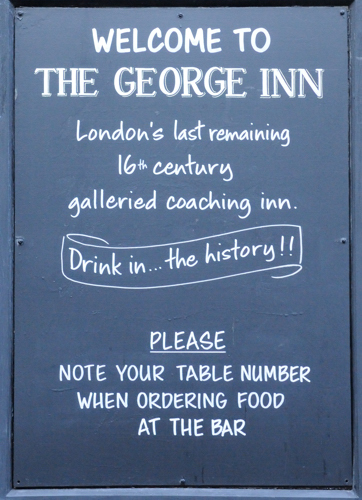 WELCOME TO
THE GEORGE INN
London's last remaining
16th century
galleried coaching inn.
Drink in... the history!!
PLEASE
NOTE YOUR TABLE NUMBER
WHEN ORDERING FOOD
AT THE BAR